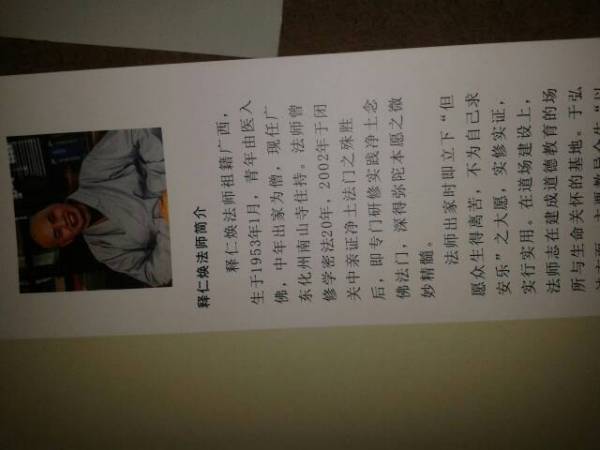 释仁焕法师简介
释仁焕法师祖籍广西，
生于1953年1月，青年由医入
佛，中年出家为僧，现任广
东化州南山寺住持。法师曾
修学密法20年，2002年于闭
关中亲证净土法门之殊胜
后，即专门研修实践净土念
佛法门，深得弥陀本愿之微
妙精髓。
法师出家时即立下“但
愿众生得离苦，不为自己求
安乐”之大愿，实修实证，
实行实用。在道场建设上，
法师志在建成道德教育的场
所与生命关怀的基地。于弘
法方面，主要教导众生“以